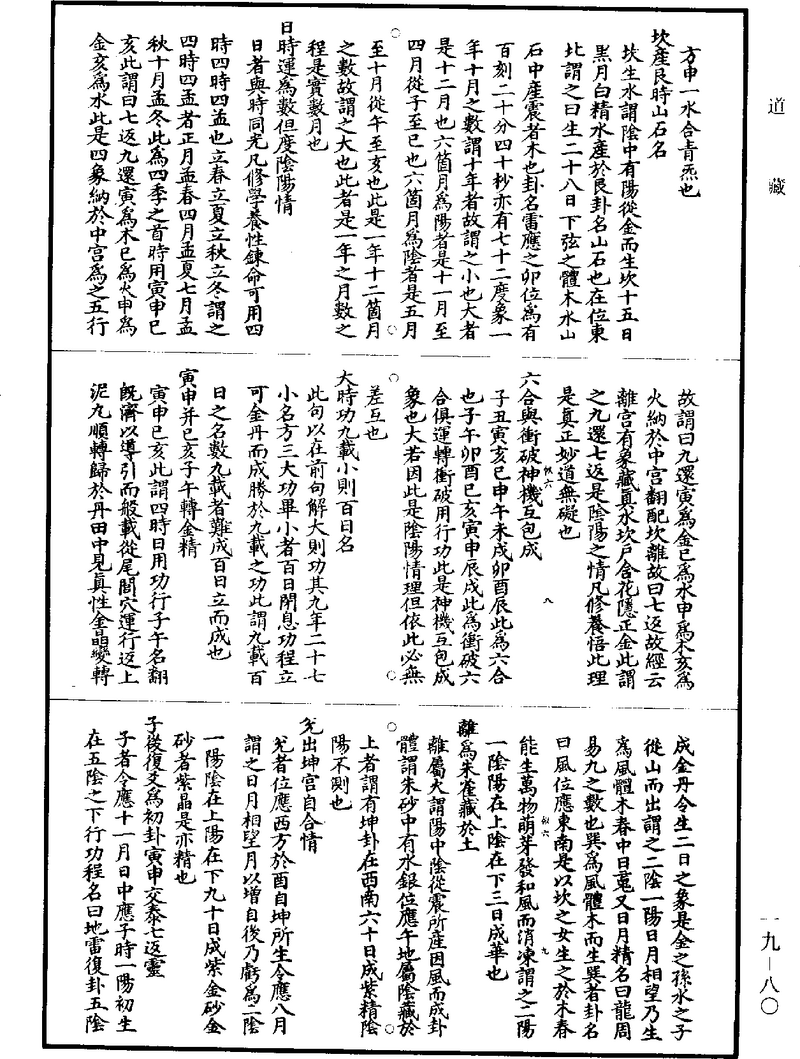 道藏
方申一水合青炁也
坎產艮時山石名
坎生水謂陰中有陽從金而生坎十五日
黑月白精水產於艮卦名山石也在位東
北謂之曰生二十八日下弦之體木水山
石中產震者木也卦名雷應之卯位為有
百刻二十分四十杪亦有七十二度象一
年十月之數謂十年者故謂之小也大者
是十二月也六箇月為陽者是十一月至
四月從子至巳也六箇月為陰者是五月
至十月從午至亥也此是一年十二箇月
之數故謂之大也此者是一年之月數之
程是實數月也
日時運為數但度陰陽情
日者與時同先凡修學養性鍊命可用四
時四時四孟也立春立夏立秋立冬謂之
四時四孟者正月孟春四月孟夏七月孟
秋十月孟冬此為四季之首時用寅申巳
亥此謂曰七返九還寅為木巳為火申為
金亥為水此是四象納於中宮為之五行
故謂曰九還寅為金巳為水申為木亥為
火納於中宮翻配坎離故曰七返故經云
離宮有象藏真水坎戶含花隱正金此謂
之九還七返是陰陽之情凡修養悟此理
是真正妙道無礙也
六合與衝破神機互包成
子丑寅亥巳申午未戌卯酉辰此為六合
也子午卯酉巳亥寅申辰戌此為衝破六
合俱運轉衝破用行功此是神機互包成
象也大若因此是陰陽情理但依此必無
差互也
大時功九載小則百日名
此句以在前句解大則功其九年二十七
小名方三大功畢小者百日閉息功程立
可金丹而成勝於九載之功此謂九載百
日之名數九載者難成百日立而成也
寅申并巳亥子午轉金精
寅申巳亥此謂四時日用功行子午名翻
既濟以導引而般載從尾閭穴運行返上
泥丸順轉歸於丹田中見真性金晶變轉
成金丹令生二日之象是金之孫水之子
從山而出謂之二陰一陽日月相望乃生
為風體木春中日䰟又日月精名曰龍周
易九之數也巽為風體木而生巽者卦名
曰風位應東南是以坎之女生之於木春
能生萬物萌芽發和風而消凍謂之二陽
一陰陽在上陰在下三日成華也
離為朱雀藏於土
離屬火謂陽中陰從震所產因風而成卦
體謂朱砂中有水銀位應午地屬陰藏於
上者謂有坤卦在西南六十日成紫精陰
陽不測也
兌出坤宮自合情
兌者位應西方於酉自坤所生令應八月
謂之日月相望月以增自後乃虧為二陰
一陽陰在上陽在下九十日成紫金砂金
砂者紫晶是亦精也
子後復爻為初卦寅申交泰七返靈
子者令應十一月日中應子時一陽初生
在五陰之下行功程名曰地雷復卦五陰
一九—八〇